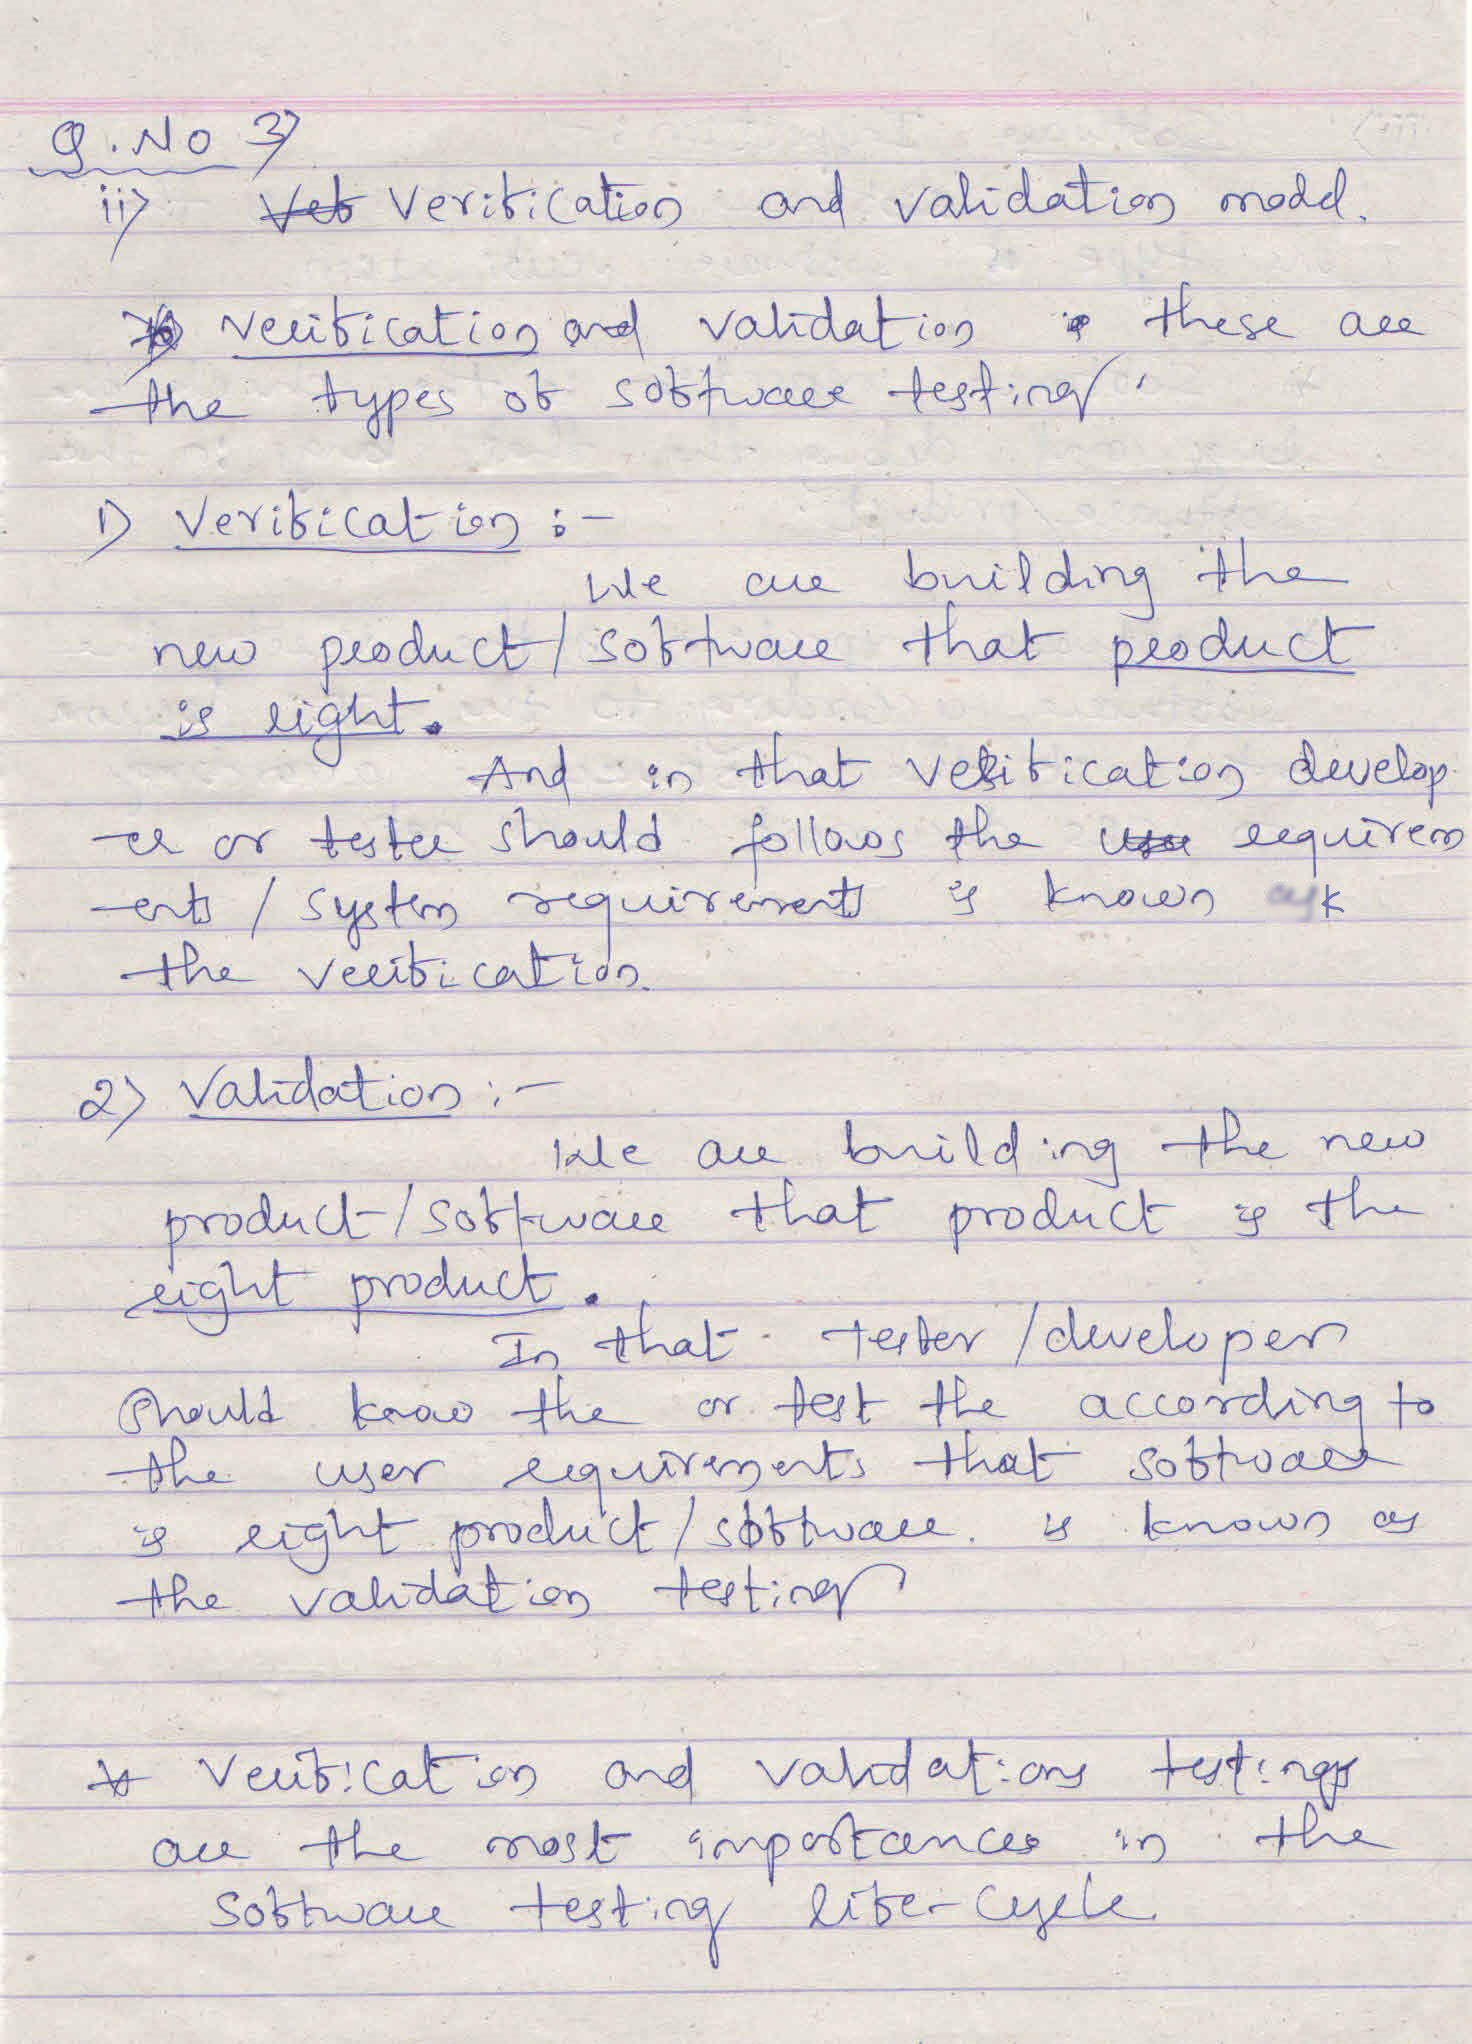 Q.No 3)
ii) Verification and validation model.
verification and validation these are
the types of software testing.
1) Verification :-
We are building the
new product/software that product
is right.
And in that verification develop
-er or tester should follows the requirem
-ents / system requirements is known as
the verification.
2) Validation :-
We are building the new
product/software that product is the
right product.
In that tester/developer
should know the or test the according to
the user requirements that software
is right product/software. is known as
the validation testing
* Verification and validations testings
are the most importances in the
software testing life-cycle.